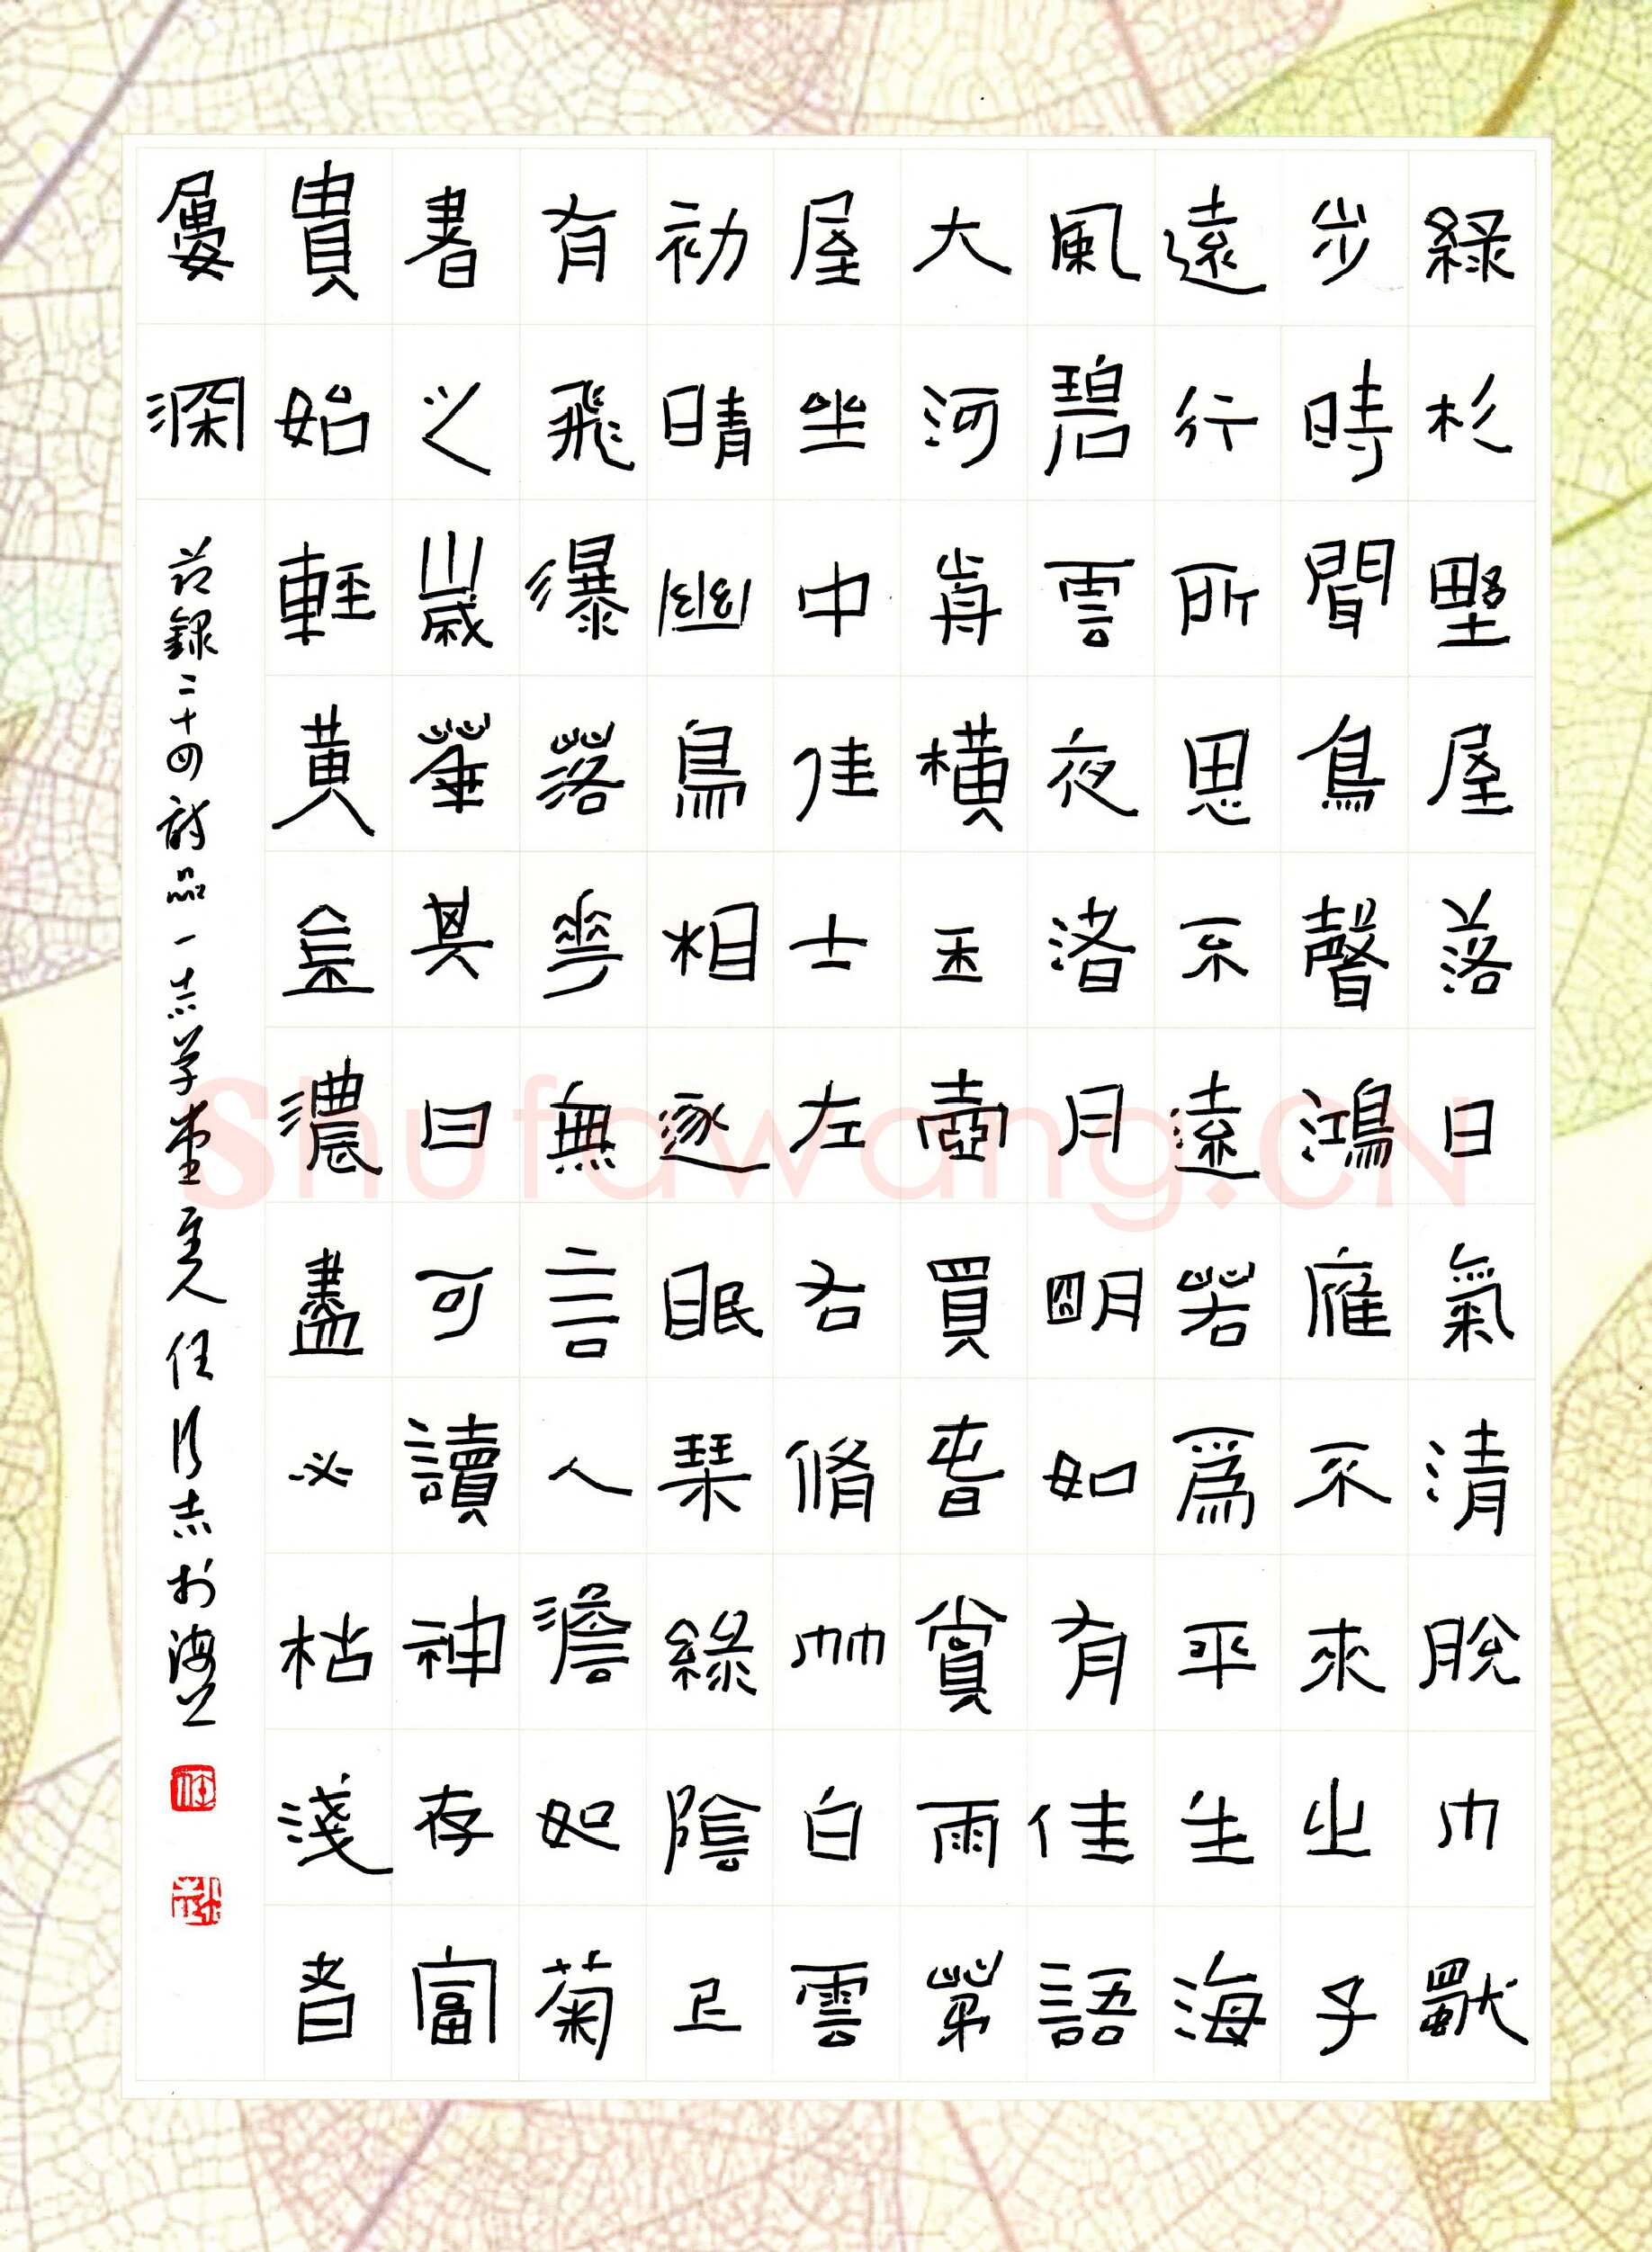 綠杉野屋落日氣清脫巾獨
步時聞鳥聲鴻雁不來之子
遠行所思不遠若為平生海
風碧雲夜渚月明如有佳語
大河前橫玉壺買春賞雨茆
屋坐中佳士左右脩竹白雲
初晴幽鳥相逐眠琴綠陰上
有飛瀑落花無言人澹如菊
書之歲華其曰可讀神存富
貴始輕黃金濃盡必枯淺者
屢深
節錄二十四詩品一志學堂主人任行志於海上
Shufawang.CN